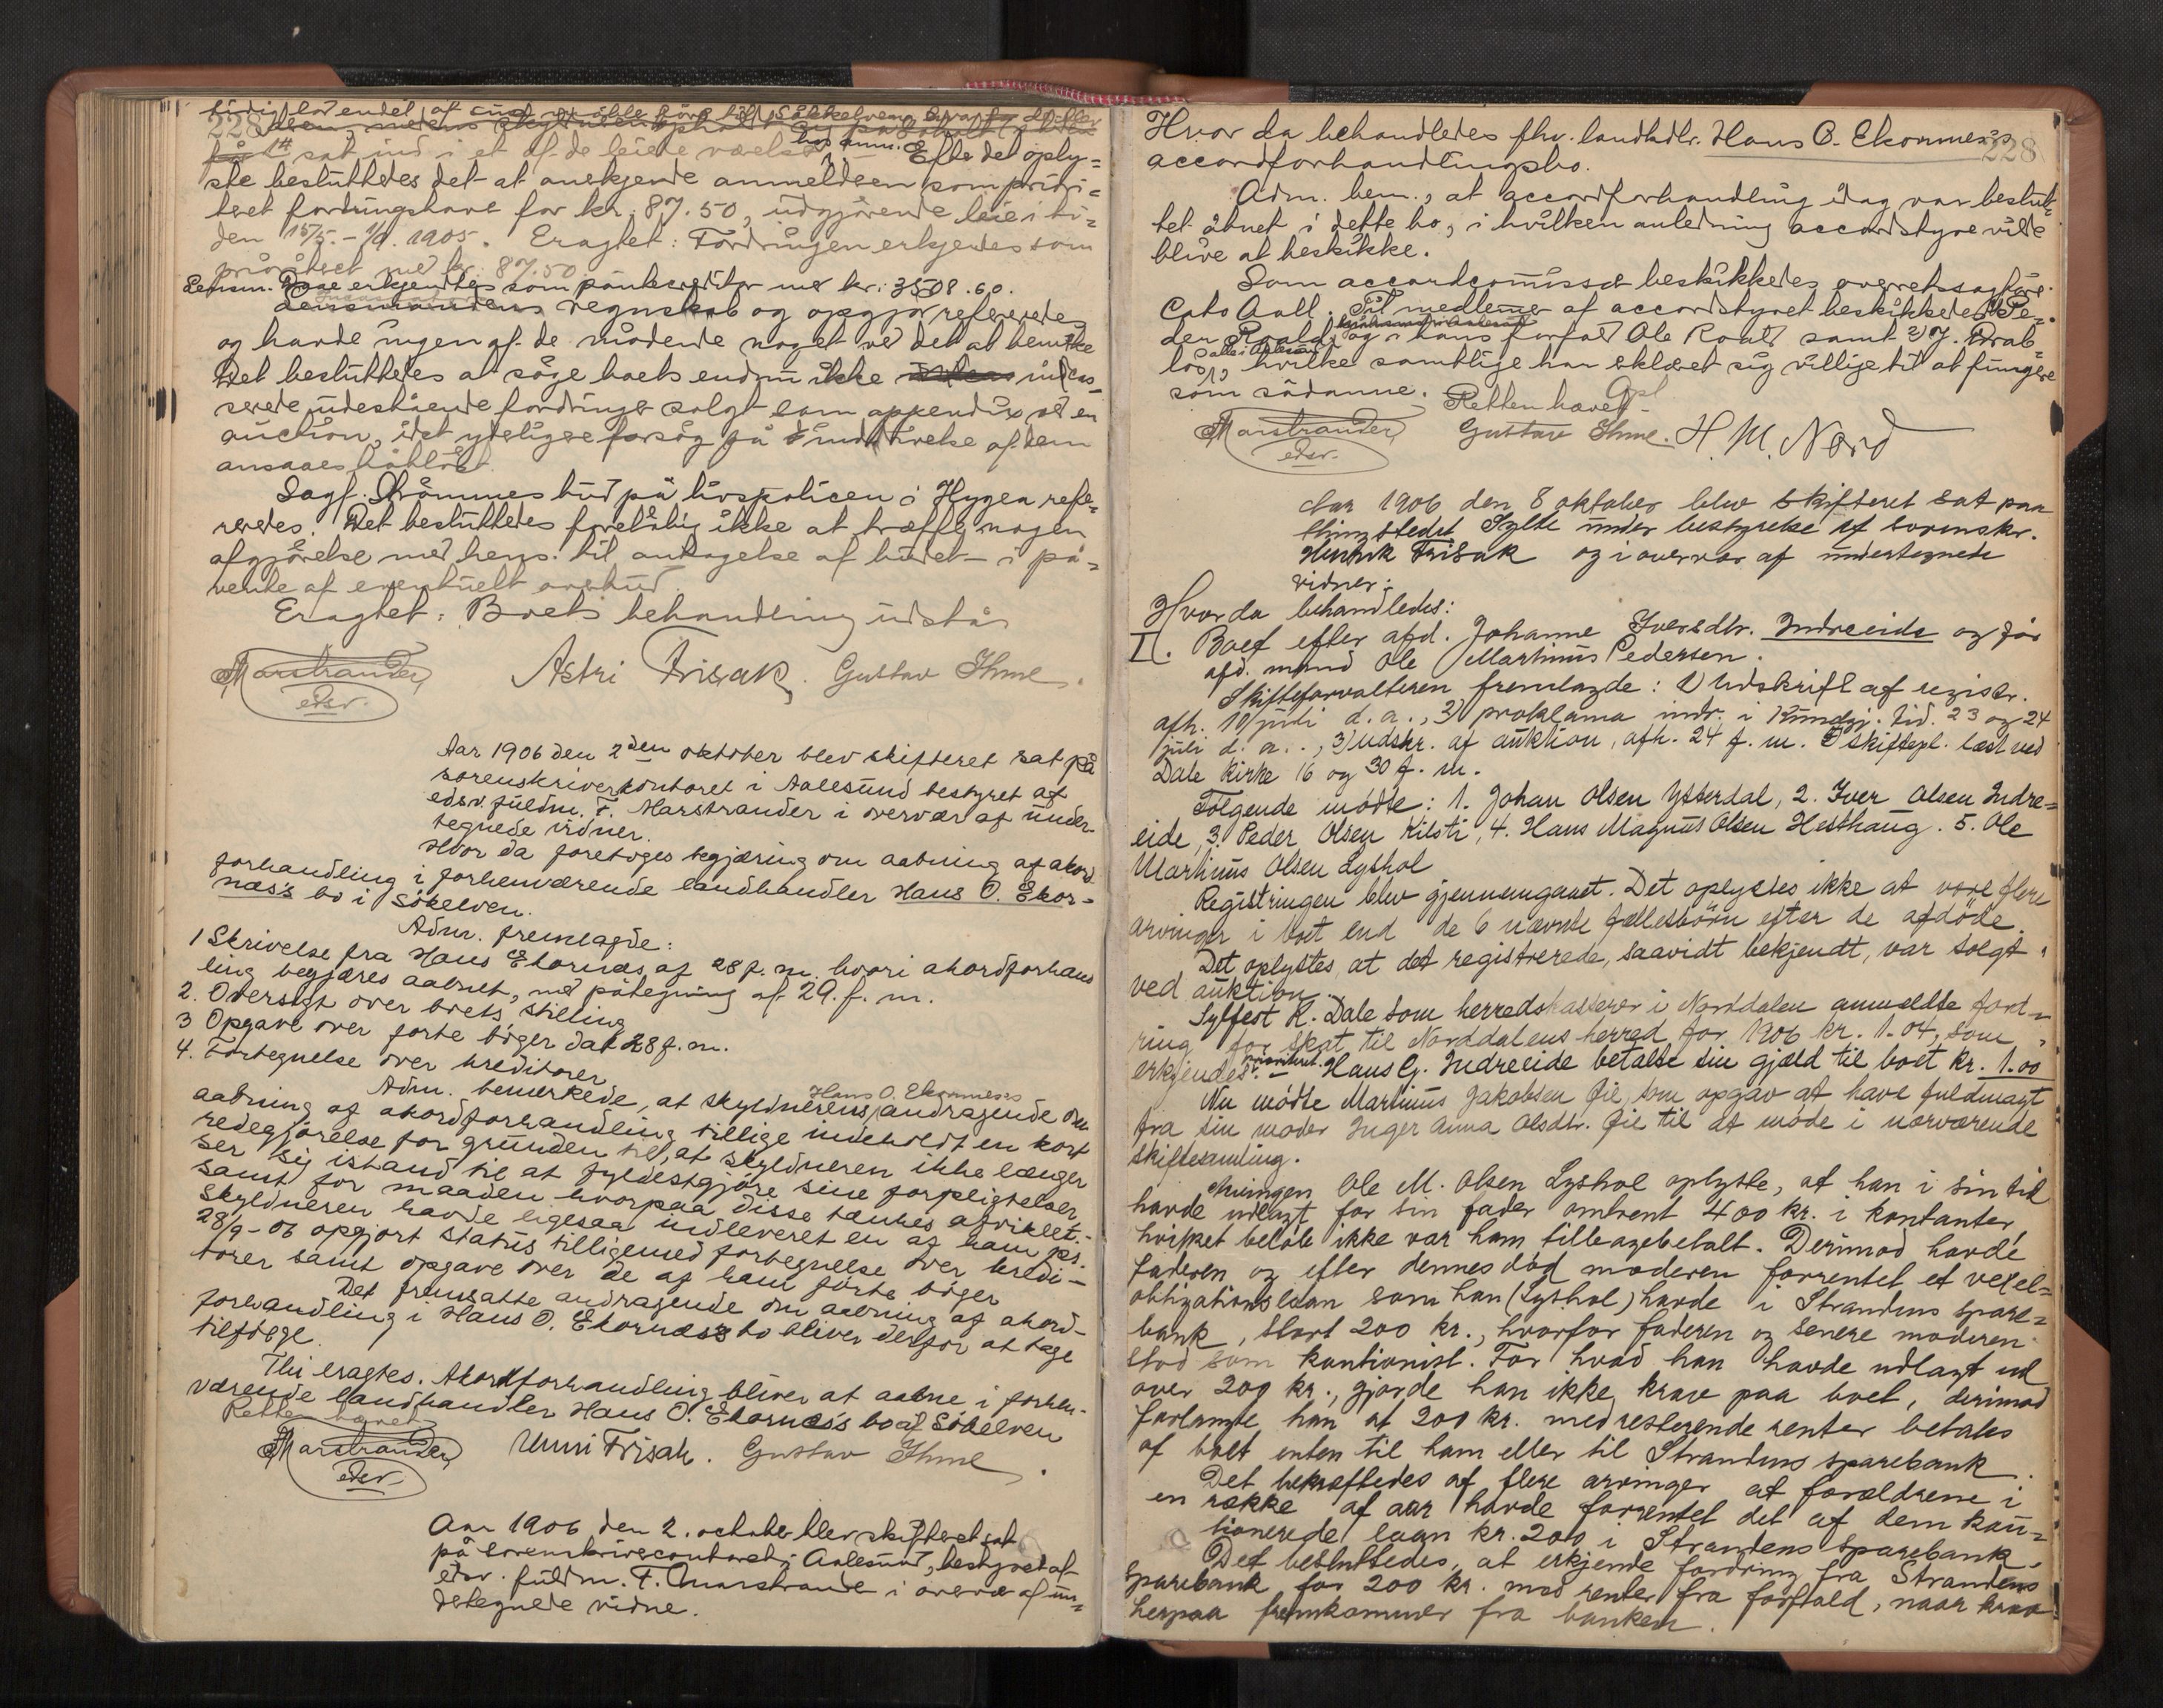 228
sat ind i et af de leiede værelser hos anm. Efter det oply=
ste besluttedes det at anerkjende anmelderen som priori=
teret fordringshaver for kr. 87.50, udgjørende leie i ti=
den 15/5. - 1/9. 1905. Eragtet: Fordringen erkjendes som
prioriteret med kr. 87.50.
Lensm. erkjendtes som pantecreditor med kr. 3508.60.
regnskab og opgjør refereredes
og havde ingen af de mødende noget ved det at bemærke
Det besluttedes at søge boets endnu ikke indcas=
serede udestående fordringer solgt som appendix ved en
auction, idet yderligere forsøg på inddrivelse af dem
ansaaes håbløst.
Sagf. Strömmes bud på livspolicen i Hygea refe=
reredes. Det besluttedes foreløbig ikke at træffe nogen
afgjørelse med hens. til antagelse af budet i på=
vente af eventuelt overbud.
Eragtet: Boets behandling udstår
Marstrander Astri Frisak. Gustav Ihme.
edsv.
Aar 1906 den 2den oktober blev skifteret sat på
sorenskriverkontoret i Aalesund bestyret af
edsv. fuldm. F. Marstrander i overvær af under-
tegnede vidner.
Hvor da foretoges begjæring om aabning af akord-
forhandling i forhenværende landhandler Hans O. Ekor=
næs's bo i Søkelven.
Adm. fremlagde:
1 Skrivelse fra Hans Ekornæs af 28 f. m. hvori akordforhand
ling begjæres aabnet, med påtegning af 29. f. m.
2. Oversigt over boets stilling
3 Opgave over førte bøger dat 28 f. m.
4. Fortegnelse over kreditorer
Adm. bemærkede, at skyldnerens Hans O. Ekornneses andragende om
aabning af akordforhandling tillige indeholdt en kort
redegjørelse for grunden til, at skyldneren ikke længer
ser sig istand til at fyldestgjøre sine forpligtelser
samt for maaden hvorpaa disse tænkes afviklet.-
Skyldneren havde ligesaa indleveret en af ham pr.
28/9-06 opgjort status tilligemed fortegnelse over kredi-
torer samt opgave over de af ham førte bøger
Det fremsatte andragende om aabning af akord-
forhandling i Hans O. Ekornæs's bo bliver derfor at tage
tilfølge.
Thi eragtes. Akordforhandling bliver at aabne i forhen-
værende landhandler Hans O. Ekornæs's bo af Søkelven
Retten hævet
Marstrander Unni Frisak. Gustav Ihme.
edsv
Aar 1906 den 2. october blev skifteret sat
på sorenskrivercontoret i Aalesund, bestyret af
edsv. fuldm. F. Marstrander i overvær af un=
dertegnede vidner.
228
Hvor da behandledes fhv. landhdlr. Hans O. Ekornnes's
accordforhandlingsbo.
Adm. bem., at accordforhandling idag var beslut=
tet åbnet i dette bo, i hvilken anledning accordstyre vilde
blive at beskikke.
Som accordcommissær beskikkedes overretssagfører
Cato Aall. Til medlemmer af accordstyret beskikkedes 1) Pe=
der Roald og i hans forfald Ole Roald samt 2) J. Drab=
løs, hvilke samtlige har erklæret sig villige til at fungere
som sådanne. Retten hævet
Marstrander Gustav Ihme. H. M. Nord
edsv.
Aar 1906 den 8 oktober blev skifteret sat paa
thingstedet Sylte under bestyrelse af sorenskr.
Henrik Frisak og i overvær af undertegnede
vidner:
Hvor da behandledes:
I. Boet efter afd. Johanne Iversdtr. Indreeide og før
afd. mand Ole Martinus Pedersen.
Skifteforvalteren fremlagde: 1) Udskrift af registr.
afh. 10 juli d. a., 2) proklama indr. i Kundgj. tid. 23 og 24
juli d. a., 3) udskr. af auktion, afh. 24 f. m. skiftepl. læst ved
Dale kirke 16 og 30 f. m.
Følgende mødte: 1. Johan Olsen Ytterdal, 2. Iver Olsen Indre=
eide, 3. Peder Olsen Kilsti, 4. Hans Magnus Olsen Hesthaug. 5. Ole
Martinus Olsen Lyshol
Registringen blev gjennemgaaet. Det oplystes ikke at være flere
arvinger i boet end de 6 nævnte fællesbørn efter de afdøde.
Det oplystes, at det registrerede, saavidt bekjendt, var solgt
ved auktion.
Sylfest K. Dale som herredskasserer i Norddalen anmeldte ford=
ring for skat til Norddalens herred for 1906 kr. 1.04, som
erkjendes prioriteret. - Hans G. Indreeide betalte sin gjæld til boet kr. 1.00
Nu mødte Martinus Jakobsen Øie, som opgav at have fuldmagt
fra sin moder Inger Anna Olsdtr. Øie til at møde i nærværende
skiftesamling.
Arvingen Ole M. Olsen Lyshol oplyste, at han i sin tid
havde udlagt for sin fader omtrent 400 kr. i kontanter,
hvilket beløb ikke var ham tilbagebetalt. Derimod havde
faderen og efter dennes død moderen forrentet et vexel=
obligationslaan som han (Lyshol) havde i Strandens spare=
bank, stort 200 kr., hvorfor faderen og senere moderen
stod som kautionist. For hvad han havde udlagt ud
over 200 kr., gjorde han ikke krav paa boet, derimod
forlangte han at 200 kr. med resterende renter betales
af boet enten til ham eller til Strandens sparebank.
Det bekræftedes af flere arvinger at forældrene i
en række af aar havde forrentet det af dem kau=
tionerede laan kr. 200 i Strandens sparebank.
Det besluttedes, at erkjende fordring fra Strandens
sparebank for 200 kr. med renter fra forfald, naar krav
herpaa fremkommer fra banken.